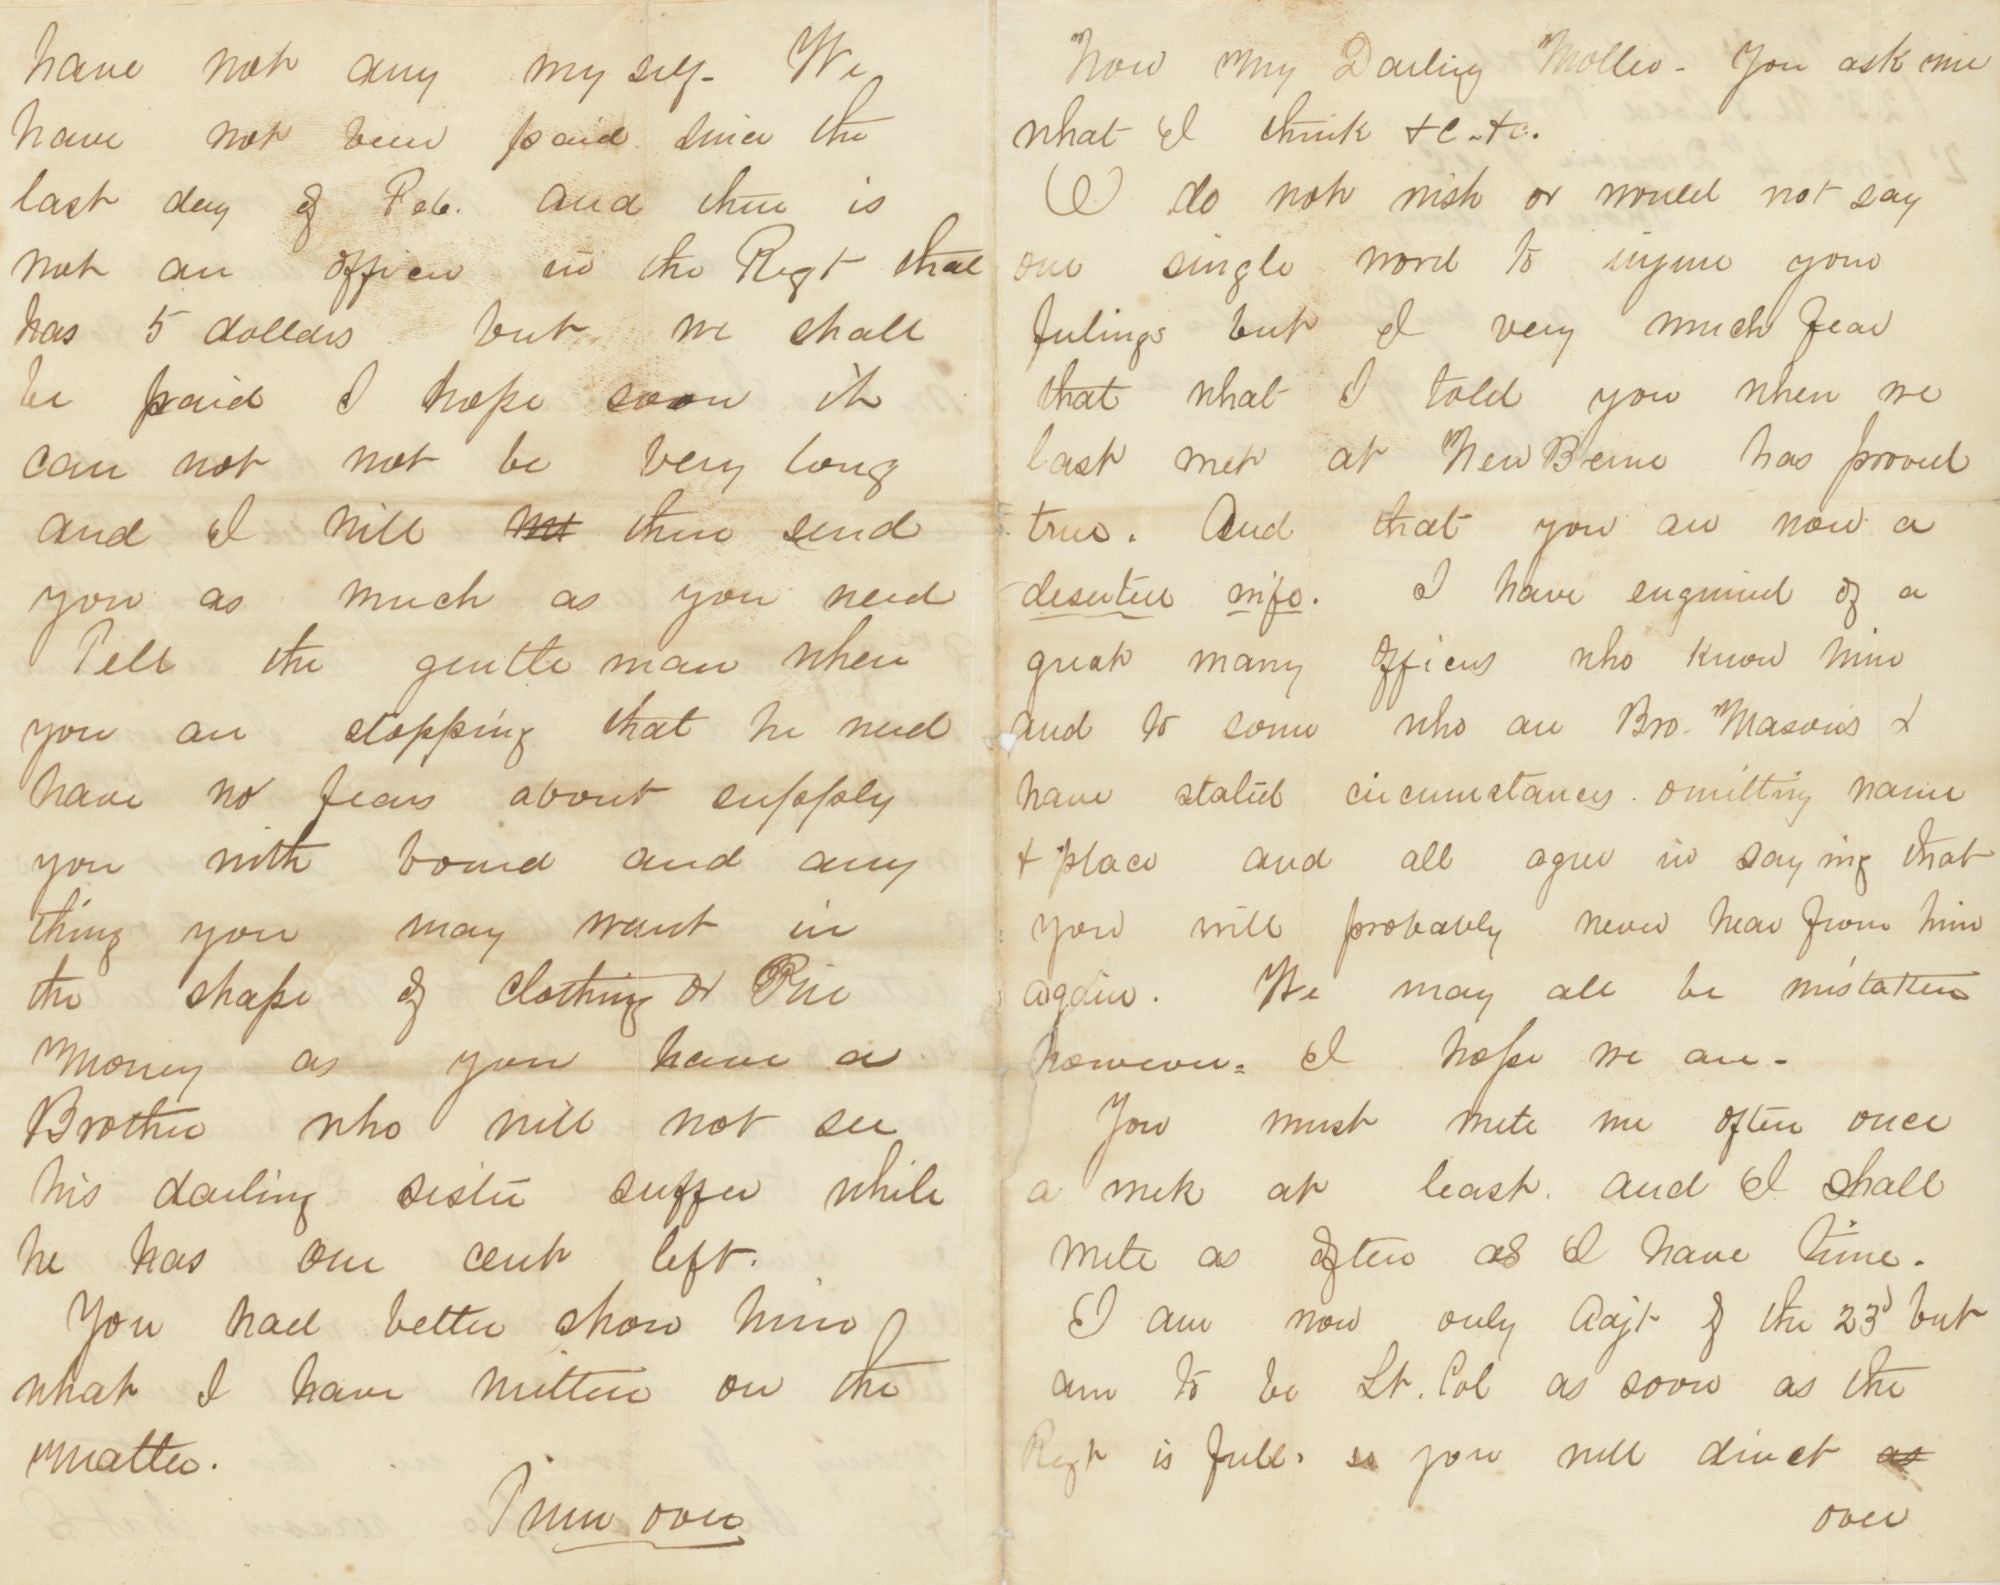 have not any my self - We
have not been paid since the
last day of Feb. and there is
not an officer in the Regt that
has 5 dollars but we shall
be paid I hope soon it
can not not be very long
and I will not then send
you as much as you need
Tell the gentleman when
you are stopping that he need
have no fears about supply
you with board and any
thing you may want in
the shape of clothing or Pin
Money as you have a
Brother who will not see
his darling sister suffer while
he has one cent left.
You had better show him
what I have written on the
matter.
Turn over
Now My Darling Mollie - You ask me
what I think &c. &c.
I do not wish or would not say
one single word to injure your
feelings but I very much fear
that what I told you when we
last met at New Berne has proved
true. And that you are now a
deserted wife. I have enquired of a
great many officers who know him
and to some who are Bro. Masons &
have stated circumstances omitting name
& place and all agree in saying that
you will probably never hear from him
again. We may all be mistaken
however - I hope we are -
You must write me often once
a week at least. and I shall
write as often as I have time.
I am now only Adjt of the 23d but
am to be Lt. Col as soon as the
Regt is full. so you will direct as
over